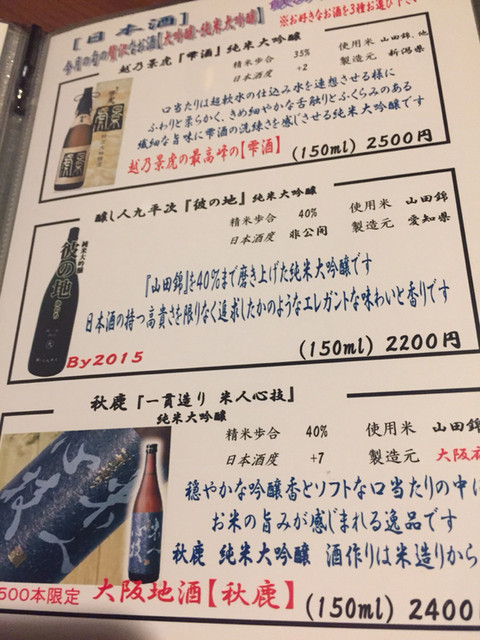 [日本酒]
今月の旬の贅沢なお酒【大吟醸・純米大吟醸】
※お好きなお酒を3種お選び下さい
越乃景虎『雫酒』純米大吟醸
精米歩合 35% 使用米 山田錦.他
日本酒度 +2 製造元 新潟県
口当たりは超軟水の仕込み水を連想させる様に
ふわりと柔らかく、きめ細やかな舌触りとふくらみのある
繊細な旨味に雫酒の洗練さを感じさせる純米大吟醸です
越乃景虎の最高峰の【雫酒】
(150ml) 2500円
醸し人九平次『彼の地』純米大吟醸
精米歩合 40% 使用米 山田錦
日本酒度 非公開 製造元 愛知県
『山田錦』を40%まで磨き上げた純米大吟醸です
日本酒の持つ高貴さを限りなく追求したかのようなエレガントな味わいと香りです
純米大吟醸
彼の地
By2015
(150ml) 2200円
秋鹿『一貫造り 米人心技』
純米大吟醸
精米歩合 40% 使用米 山田錦
日本酒度 +7 製造元 大阪
穏やかな吟醸香とソフトな口当たりの中に
お米の旨みが感じまれる逸品です
秋鹿 純米大吟醸 酒作りは米造りから
500本限定 大阪地酒【秋鹿】
(150ml) 2400